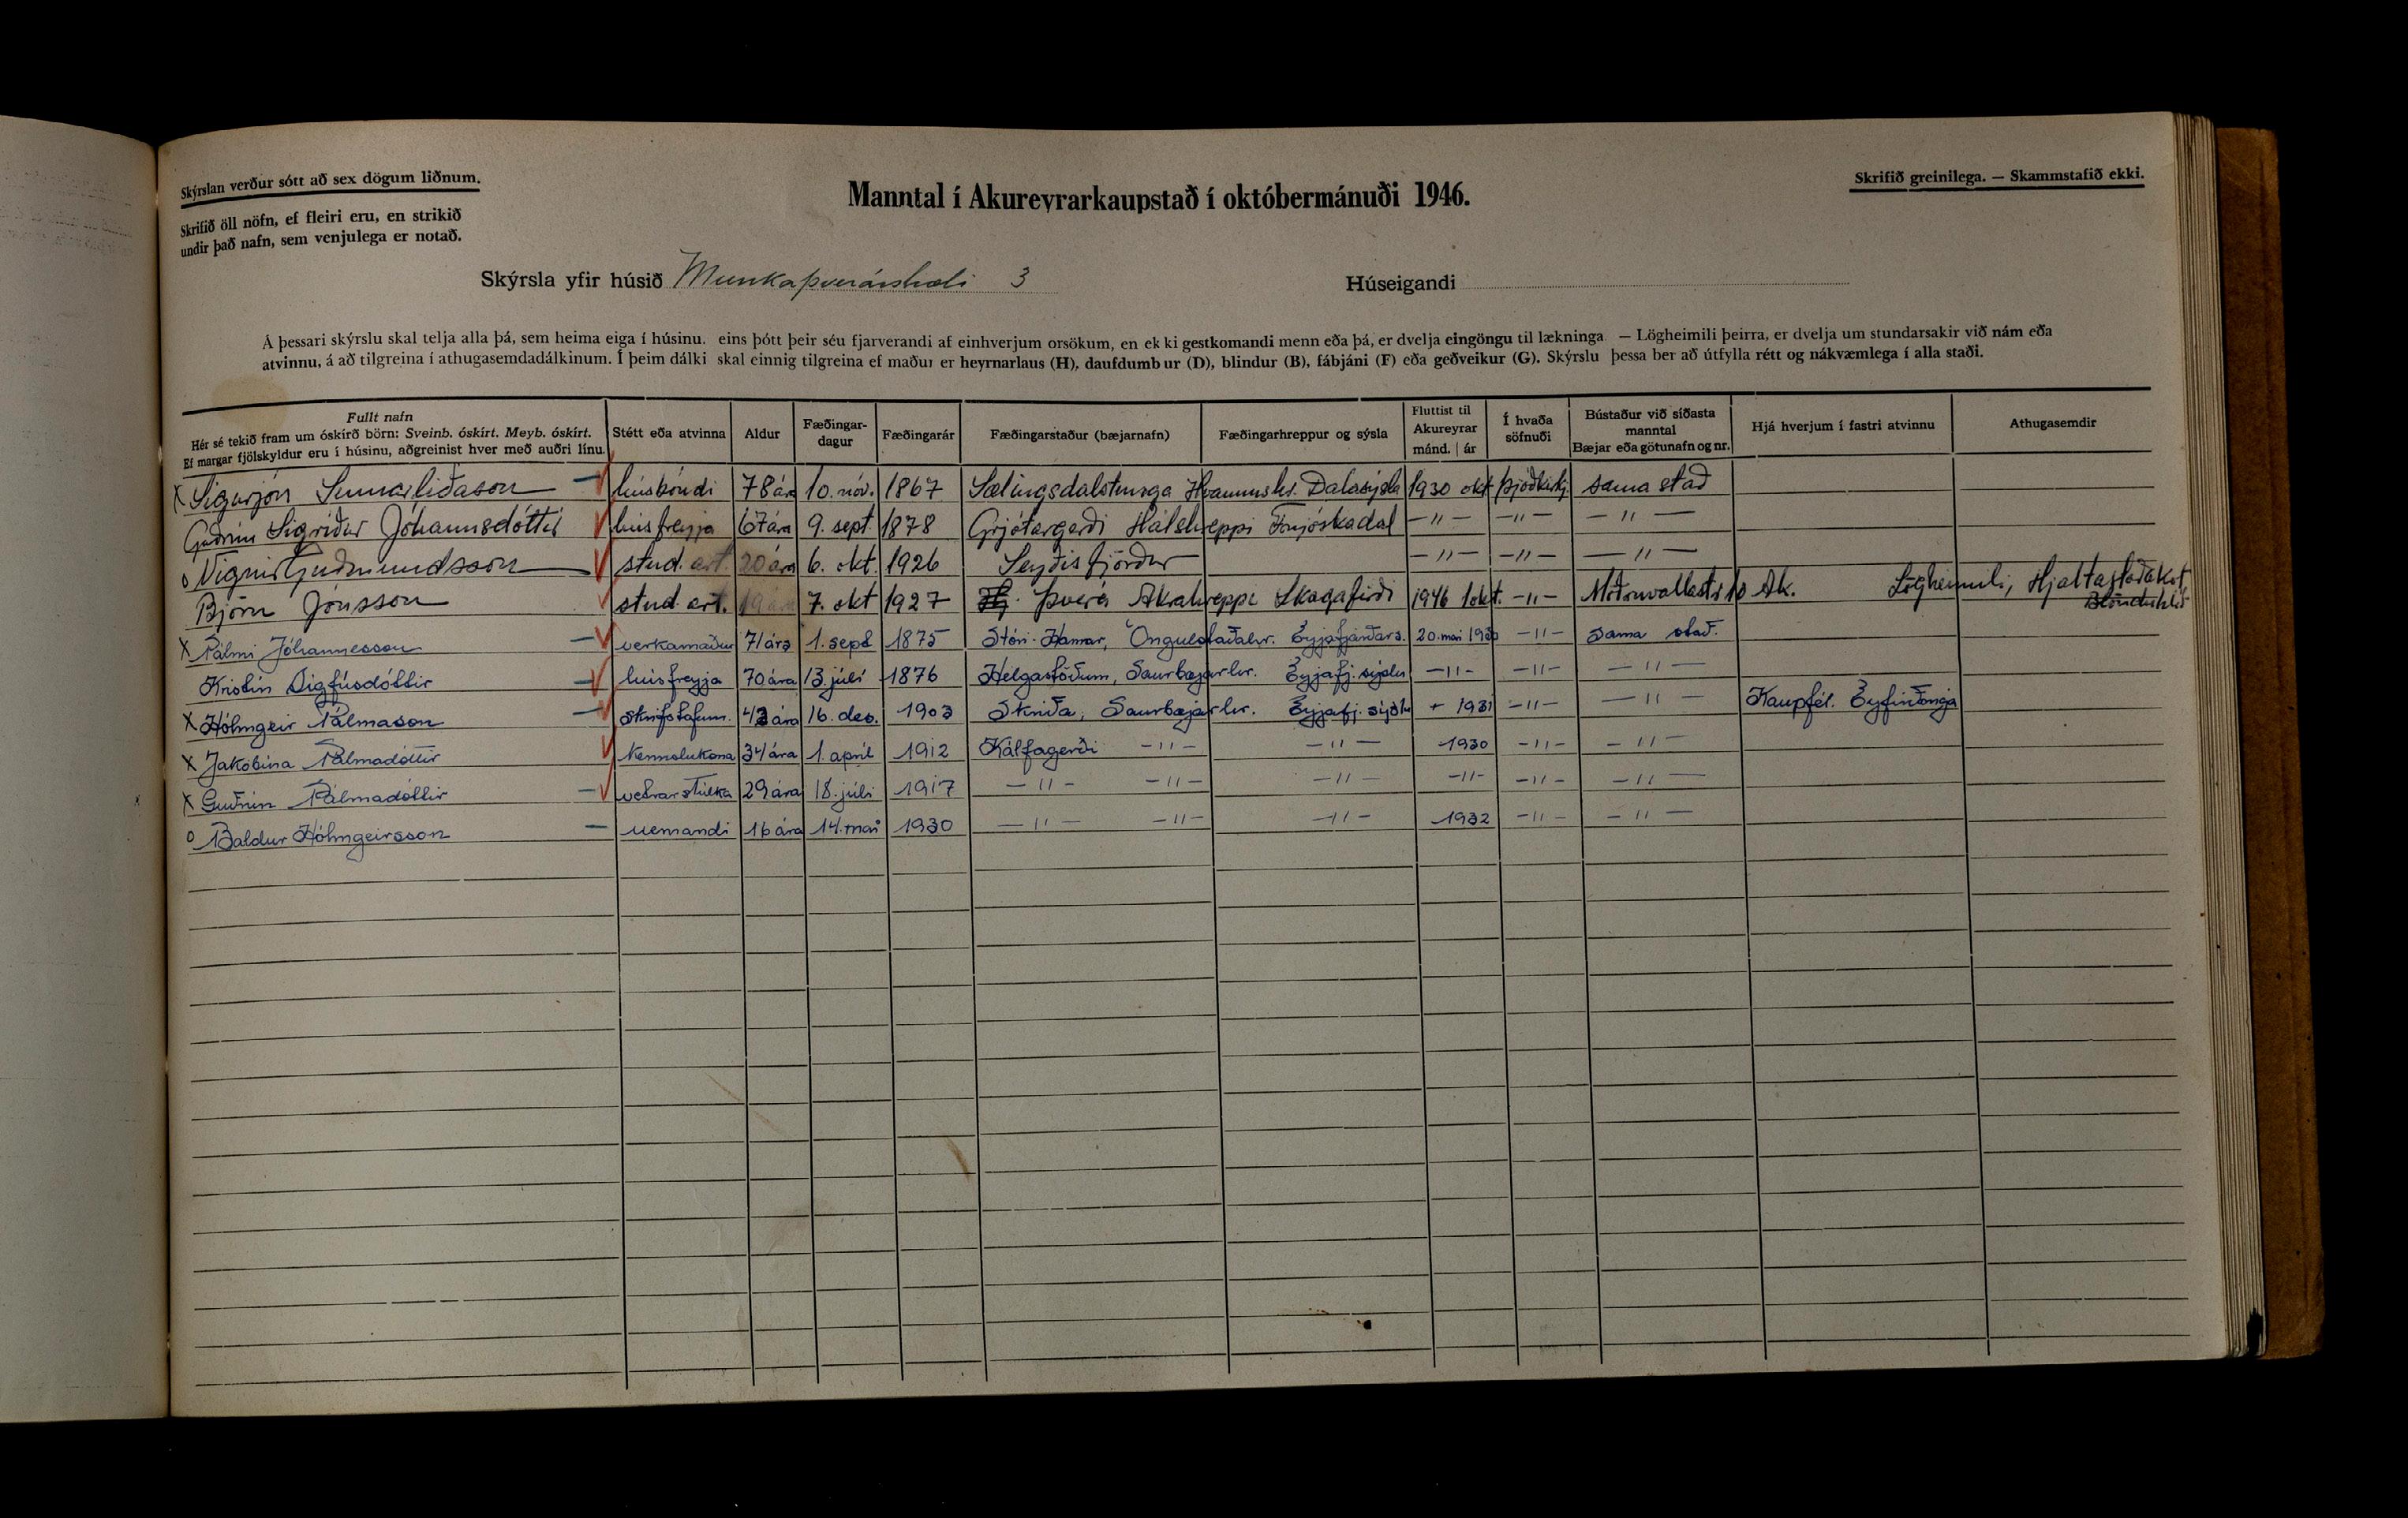 Skýrslan verður sótt að sex dögum liðnum.
Skrifið öll nöfn, ef fleiri eru, en strikið
undir það nafn, sem venjulega er notað.
Manntal í Akureyrarkaupstað í októbermánuði 1946.
Skrifið greinilega. — Skammstafið ekki.
Skýrsla yfir húsið Munkaþverárstræti 3 Húseigandi
Á þessari skýrslu skal telja alla þá, sem heima eiga í húsinu. eins þótt þeir séu fjarverandi af einhverjum orsökum, en ek ki gestkomandi menn eða þá, er dvelja eingöngu til lækninga — Lögheimili þeirra, er dvelja um stundarsakir við nám eða
atvinnu, á að tilgreina í athugasemdadálkinum. Í þeim dálki skal einnig tilgreina ef maður er heyrnarlaus (H), daufdumb ur (D), blindur (B), fábjáni (F) eða geðveikur (G). Skýrslu þessa ber að útfylla rétt og nákvæmlega í alla staði.
Fullt nafn
Hér sé tekið fram um óskírð börn: Sveinb. óskírt. Meyb. óskírt.
Ef margar fjölskyldur eru í húsinu, aðgreinist hver með auðri línu.
Stétt eða atvinna
Aldur
Fæðingar-
dagur
Fæðingarár
Fæðingarstaður (bæjarnafn)
Fæðingarhreppur og sýsla
Fluttist til
Akureyrar
mánd. | ár
Í hvaða
söfnuði
Bústaður við síðasta
manntal
Bæjar eða götunafn og nr.
Hjá hverjum í fastri atvinnu
Athugasemdir
x Sigurjón Sumarliðason húsbóndi 78 ára 10. nóv. 1867 Sælingsdalstunga Hvammshr. Dalasýsla 1930 okt Þjóðkirkj. sama stað
Guðrún Sigríður Jóhannsdóttir húsfreyja 67 ára 9. sept. 1878 Grjótargerði Hálshreppi Fnjóskadal —"— —"— —"—
o Vignir Guðmundsson stud. art. 20 ára 6. okt. 1926 Seyðisfjörður —"— —"— —"—
Björn Jónsson stud. art. 19 ára 7. okt 1927 Þverá Akrahreppi Skagafirði 1946 1 okt. —"— Möðruvallastr. 10 Ak. Lögheimili, Hjaltastaðakot
Blönduhlíð
x Pálmi Jóhannesson verkamaður 71 árs 1. sept 1875 Stóri-Hamar, Öngulstaðahr. Eyjafjarðars. 20. maí 1930 —"— Sama stað.
Kristín Sigfúsdóttir húsfreyja 70 ára 13. júlí 1876 Helgastöðum, Saurbæjarhr. Eyjafj. sýslu —"— —"— —"—
x Hólmgeir Pálmason Skrifstofum. 43 ára 16. des. 1903 Skriða, Saurbæjarhr. Eyjafj. sýslu 1931 —"— —"— Kaupfél. Eyfirðinga
x Jakobína Pálmadóttir Kennslukona 34 ára 1. apríl 1912 Kálfagerði —"— —"— 1930 —"— —"—
x Guðrún Pálmadóttir 29 ára 18. júlí 1917 —"— —"— —"— —"— —"— —"—
o Baldur Hólmgeirsson nemandi 16 ára 14. maí 1930 —"— —"— —"— 1932 —"— —"—